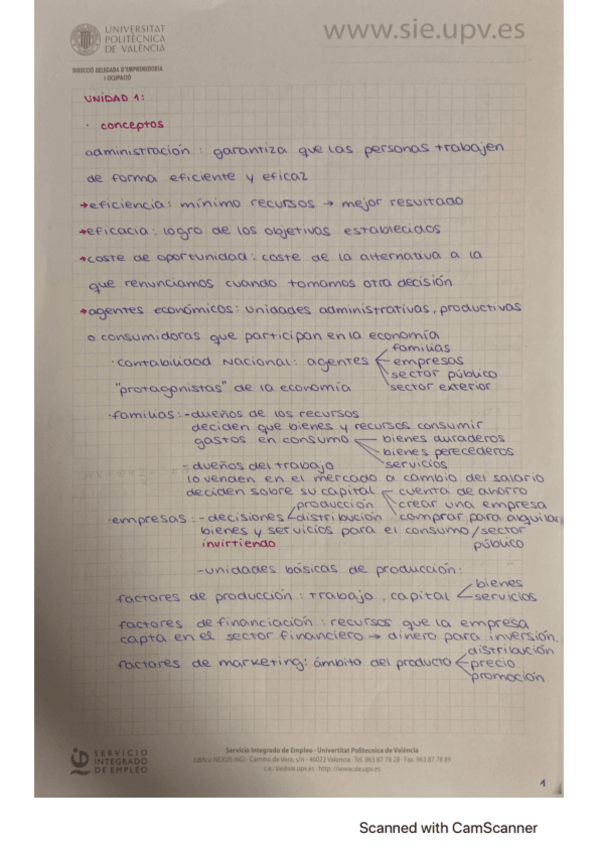 UNIVERSITAT
POLITÈCNICA
DE VALÈNCIA
www.sie.upv.es
DIRECCIÓ DELEGADA D'EMPRENEDORIA
I OCUPACIÓ
UNIDAD 1:
· conceptos
administración : garantiza que las personas trabajen
de forma eficiente y eficaz
→eficiencia: mínimo recursos → mejor resultado
→eficacia: logro de los objetivos establecidos
→coste de oportunidad: coste de la alternativa a la
que renunciamos cuando tomamos otra decisión
→agentes económicos: unidades administrativas, productivas
o consumidoras que participan en la economía
familias
·contabilidad Nacional: agentes empresas
sector público
"protagonistas" de la economía sector exterior
·familias:-dueños de los recursos
deciden que bienes y recursos consumir
gastos en consumo bienes duraderos
bienes perecederos
- dueños del trabajo servicios
lo venden en el mercado a cambio del salario
deciden sobre su capital cuenta de ahorro
producción crear una empresa
·empresas:-decisiones distribución comprar para alquilar
bienes y servicios para el consumo/sector
invirtiendo público
-unidades básicas de producción:
bienes
factores de producción: trabajo, capital servicios
factores de financiación: recursos que la empresa
capta en el sector financiero → dinero para inversión.
distribución
factores de marketing: ámbito del producto precio
promoción
SERVICIO
INTEGRADO
DE EMPLEO
Servicio Integrado de Empleo · Universitat Politècnica de València
Edifico NEXUS (6G) · Camino de Vera, s/n · 46022 Valencia · Tel. 963 87 78 28 · Fax. 963 87 78 89
c.e.: sie@sie.upv.es · http: //www.sie.upv.es
1
Scanned with CamScanner